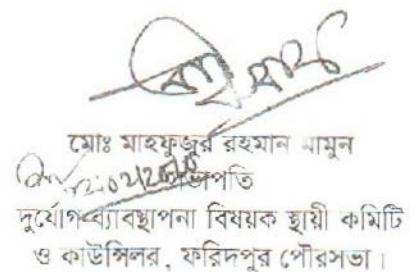 মোঃ মাহফুজুর রহমান মামুন
সভাপতি
দুর্যোগ ব্যাবস্থাপনা বিষয়ক স্থায়ী কমিটি
ও কাউন্সিলর, ফরিদপুর পৌরসভা।